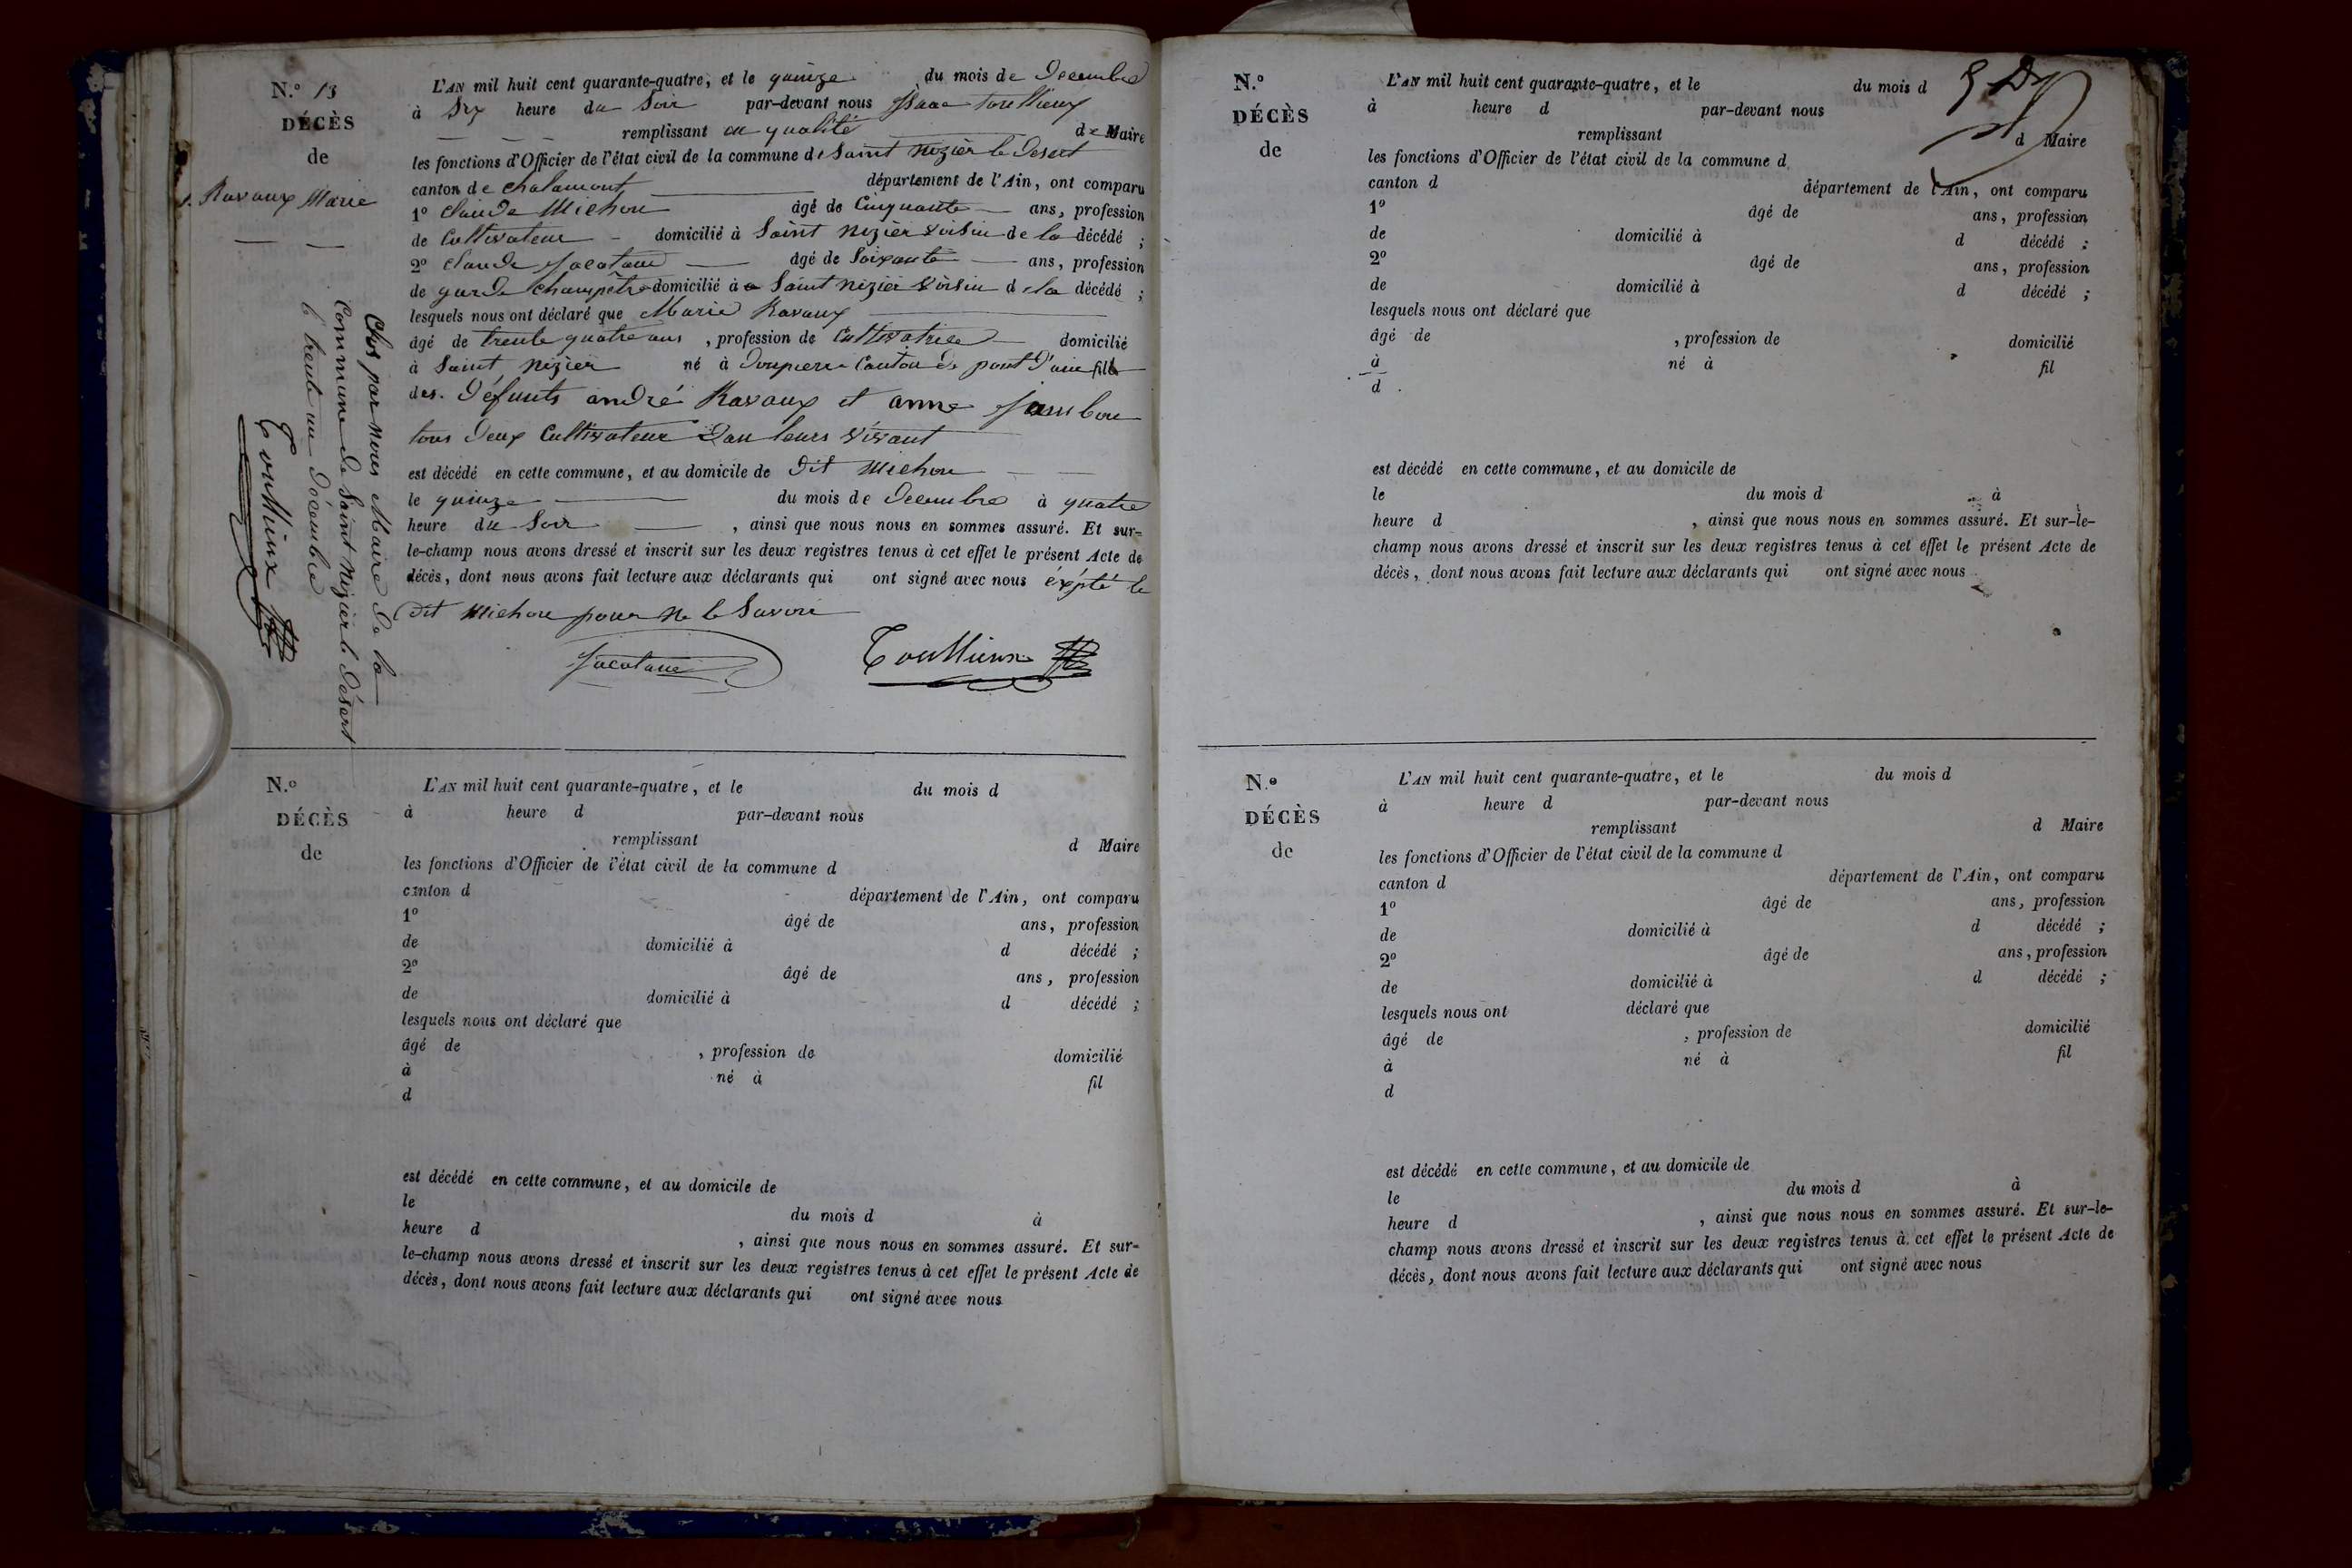 N.° 13
DÉCÈS
de
Ravaux Marie
L'AN mil huit cent quarante-quatre, et le quinze du mois de Decembre
à Six heure du Soir par-devant nous Isaac Toullieux
remplissant en qualité de Maire
les fonctions d'Officier de l'état civil de la commune de Saint nizier le Desert
canton de chalamont département de l'Ain, ont comparu
1° claude Michon âgé de Cinquante ans, profession
de Cultivateur domicilié à Saint nizier voisin de la décédé ;
2° claude Jacotane âgé de Soixante ans, profession
de garde champêtre domicilié à Saint nizier voisin de la décédé ;
lesquels nous ont déclaré que Marie Ravaux
âgé de trente quatre ans , profession de Cultivatrice domicilié
à Saint nizier né à Doupierre Canton de pont d'ain fille
des Défunts andré Ravaux et anne Jambon
tous deux Cultivateur dan leurs vivant
est décédé en cette commune, et au domicile de dit Michon
le quinze du mois de Decembre à quatre
heure du Soir , ainsi que nous nous en sommes assuré. Et sur-
le-champ nous avons dressé et inscrit sur les deux registres tenus à cet effet le présent Acte de
décès, dont nous avons fait lecture aux déclarants qui ont signé avec nous éxpté le
Dit Michon pour ne le Savoir
Jacotane Toullieux
Clos par nous Maire de la
Commune de Saint Nizier le Désert
le trente un décembre
Toullieux
N.°
DÉCÈS
de
L'AN mil huit cent quarante-quatre, et le du mois d
à heure d par-devant nous
remplissant d Maire
les fonctions d'Officier de l'état civil de la commune d
canton d département de l'Ain, ont comparu
1° âgé de ans, profession
de domicilié à d décédé ;
2° âgé de ans, profession
de domicilié à d décédé ;
lesquels nous ont déclaré que
âgé de , profession de domicilié
à né à fil
d
est décédé en cette commune, et au domicile de
le du mois d à
heure d , ainsi que nous nous en sommes assuré. Et sur-
le-champ nous avons dressé et inscrit sur les deux registres tenus à cet effet le présent Acte de
décès, dont nous avons fait lecture aux déclarants qui ont signé avec nous
N.°
DÉCÈS
de
L'AN mil huit cent quarante-quatre, et le du mois d
à heure d par-devant nous
remplissant d Maire
les fonctions d'Officier de l'état civil de la commune d
canton d département de l'Ain, ont comparu
1° âgé de ans, profession
de domicilié à d décédé ;
2° âgé de ans, profession
de domicilié à d décédé ;
lesquels nous ont déclaré que
âgé de , profession de domicilié
à né à fil
d
est décédé en cette commune, et au domicile de
le du mois d à
heure d , ainsi que nous nous en sommes assuré. Et sur-le-
champ nous avons dressé et inscrit sur les deux registres tenus à cet effet le présent Acte de
décès, dont nous avons fait lecture aux déclarants qui ont signé avec nous
N.°
DÉCÈS
de
L'AN mil huit cent quarante-quatre, et le du mois d
à heure d par-devant nous
remplissant d Maire
les fonctions d'Officier de l'état civil de la commune d
canton d département de l'Ain, ont comparu
1° âgé de ans, profession
de domicilié à d décédé ;
2° âgé de ans, profession
de domicilié à d décédé ;
lesquels nous ont déclaré que
âgé de , profession de domicilié
à né à fil
d
est décédé en cette commune, et au domicile de
le du mois d à
heure d , ainsi que nous nous en sommes assuré. Et sur-le-
champ nous avons dressé et inscrit sur les deux registres tenus à cet effet le présent Acte de
décès, dont nous avons fait lecture aux déclarants qui ont signé avec nous